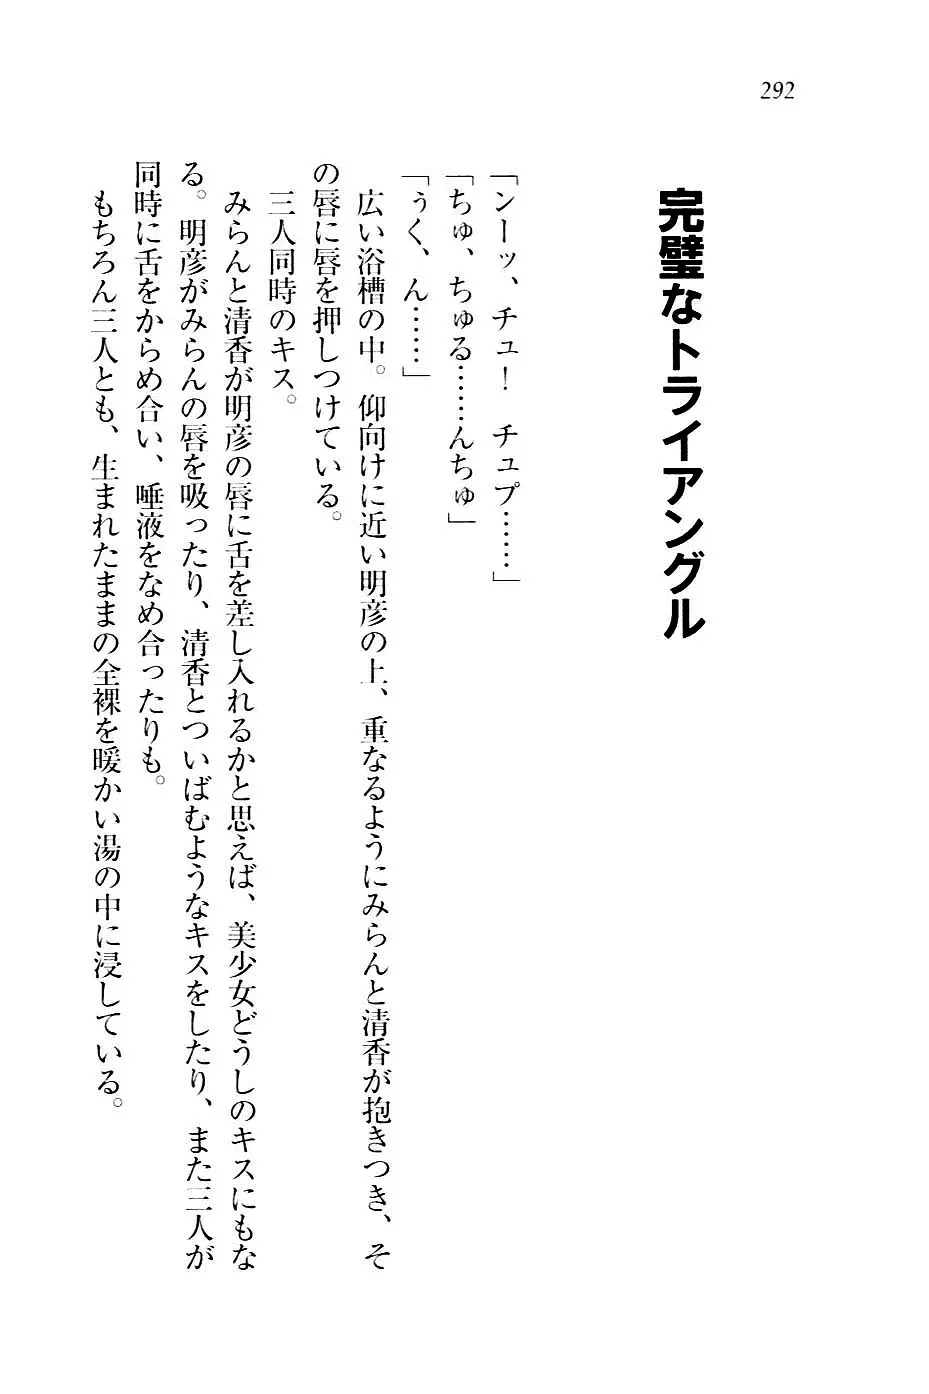 292
完璧なトライアングル
「ンーッ、チュ！　チュプ……」
「ちゅ、ちゅる……んちゅ」
「うく、ん……」
広い浴槽の中。仰向けに近い明彦の上、重なるようにみらんと清香が抱きつき、そ
の唇に唇を押しつけている。
三人同時のキス。
みらんと清香が明彦の唇に舌を差し入れるかと思えば、美少女どうしのキスにもな
る。明彦がみらんの唇を吸ったり、清香とついばむようなキスをしたり、また三人が
同時に舌をからめ合い、唾液をなめ合ったりも。
もちろん三人とも、生まれたままの全裸を暖かい湯の中に浸している。